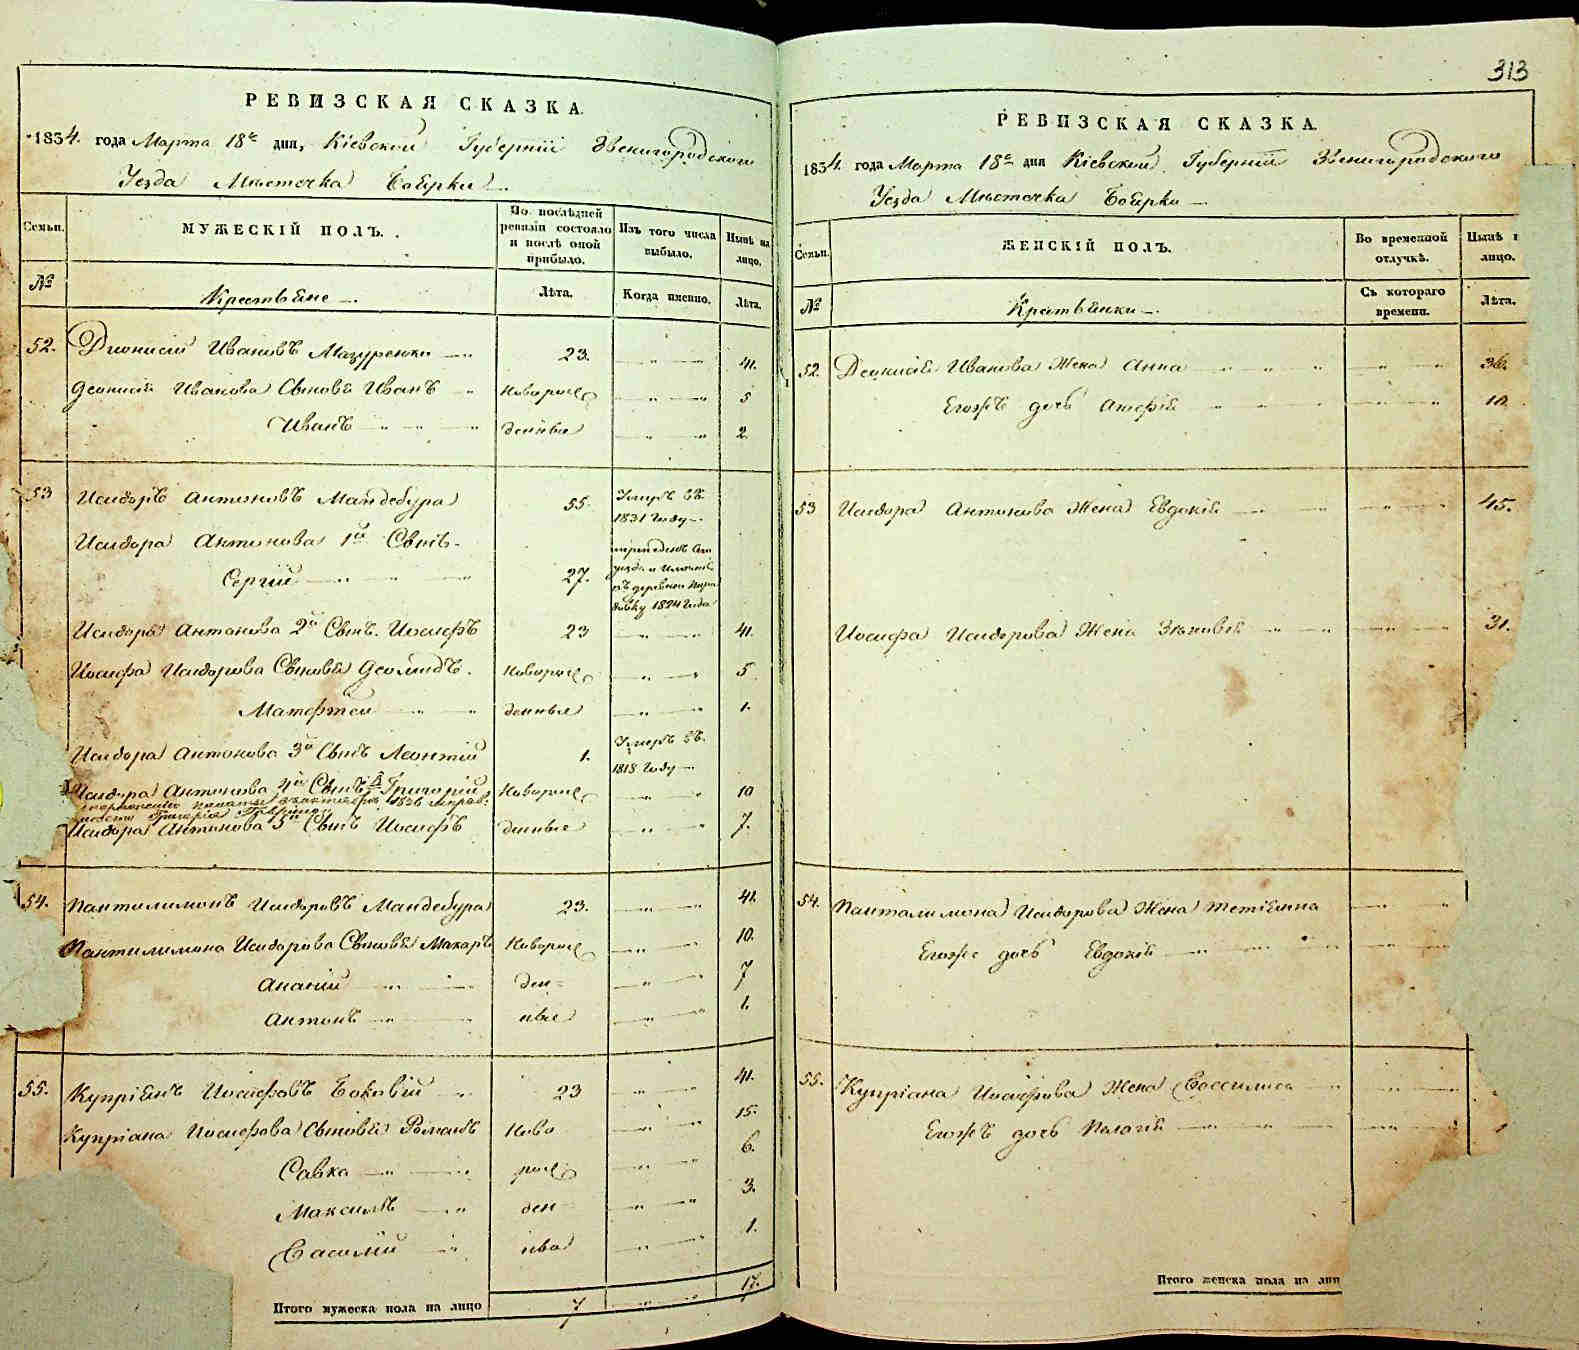 313
РЕВИЗСКАЯ СКАЗКА.
1834. года Марта 18го дня, Кіевской Губерніи Звенигородского
Уезда Местечка Боярки
Семьи.
МУЖЕСКІЙ ПОЛЪ.
По послѣдней ревизіи состояло и послѣ оной прибыло.
Изъ того числа выбыло.
Нынѣ на лицо.
№
Крестьяне
Лѣта.
Когда именно.
Лѣта.
52. Дионисій Ивановъ Мазуренко 23. 41.
Деонисія Иванова Сыновья Иванъ новорож 5
Иванъ денныя 2.
53 Исидоръ Антоновъ Мандебура 55. Умеръ въ
1831 Году
Исидора Антонова 1й Сынъ
Сергій 27.
1824 Года
Исидора Антонова 2й Сынъ. Иосифъ 23 41.
Иосифа Исидорова Сыновья Деомидъ. новорож 5
Матфтей денныя 1.
Исидора Антонова 3й Сынъ Леонтій 1. Умеръ въ
1818 Году
Исидора Антонова 4й Сынъ Григорій Новорож 10
Исидора Антонова 5й Сынъ Иосифъ денные 7.
54. Пантилимонъ Исидоровъ Мандебура 23. 41.
Пантилимона Исидорова Сыновья Макаръ Новорож 10.
Ананій ден= 7
Антонъ ные 1.
55. Купріянъ Иосифовъ Боковій 23 41.
Купріана Иосифова Сыновья Романъ Ново 15.
Савка рож 6.
Максимъ ден 3.
Василій ныя 1.
Итого мужеска пола на лицо 7 17.
РЕВИЗСКАЯ СКАЗКА.
1834. года Марта 18го дня Кіевской Губерніи Звенигородского
Уезда Местечка Боярки
Семьи.
ЖЕНСКІЙ ПОЛЪ.
Во временной отлучкѣ.
Нынѣ
лицо.
№
Крестьянки
Съ котораго времени.
Лѣта.
52. Деонисія Иванова Жена Анна 36.
Егожъ дочь Агафія 10.
53 Исидора Антонова Жена Евдокія 45.
Иосифа Исидорова Жена Зѣновія 31.
54. Панталимона Исидорова Жена Тетіянна
Егоже дочь Евдокія
55. Купріана Иосифова Жена Вассилиса
Егожъ дочь Палагія
Итого женска пола на лиц